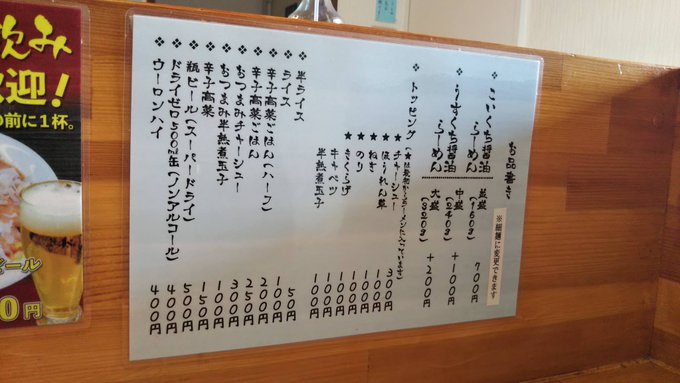 お品書き
※細麺に変更できます
❖こいくち醤油らーめん 並盛(160g) 700円
❖うすくち醤油らーめん 中盛(240g) +100円
大盛(320g) +200円
❖トッピング(★は最初からラーメンに入っています)
★チャーシュー 300円
★ほうれん草 100円
★ねぎ 100円
★のり 100円
★きくらげ 100円
キャベツ 100円
半熟煮玉子 100円
❖半ライス 50円
❖ライス 100円
❖辛子高菜ごはん(ハーフ) 200円
❖辛子高菜ごはん 250円
❖おつまみチャーシュー 300円
❖おつまみ半熟煮玉子 100円
❖辛子高菜 150円
❖瓶ビール(スーパードライ) 500円
❖ドライゼロ500ml缶(ノンアルコール) 400円
❖ウーロンハイ 400円
飲み
迎！
の前に1杯。
ビール
0円